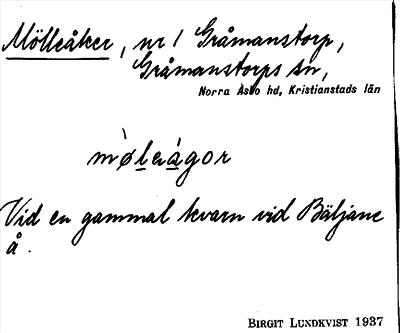 Mölleåker, nr 1 Gråmanstorp,
Gråmanstorps sn,
Norra Åsbo hd, Kristianstads län
mølaågor
Vid en gammal kvarn vid Bäljane
å.
BIRGIT LUNDKVIST 1937